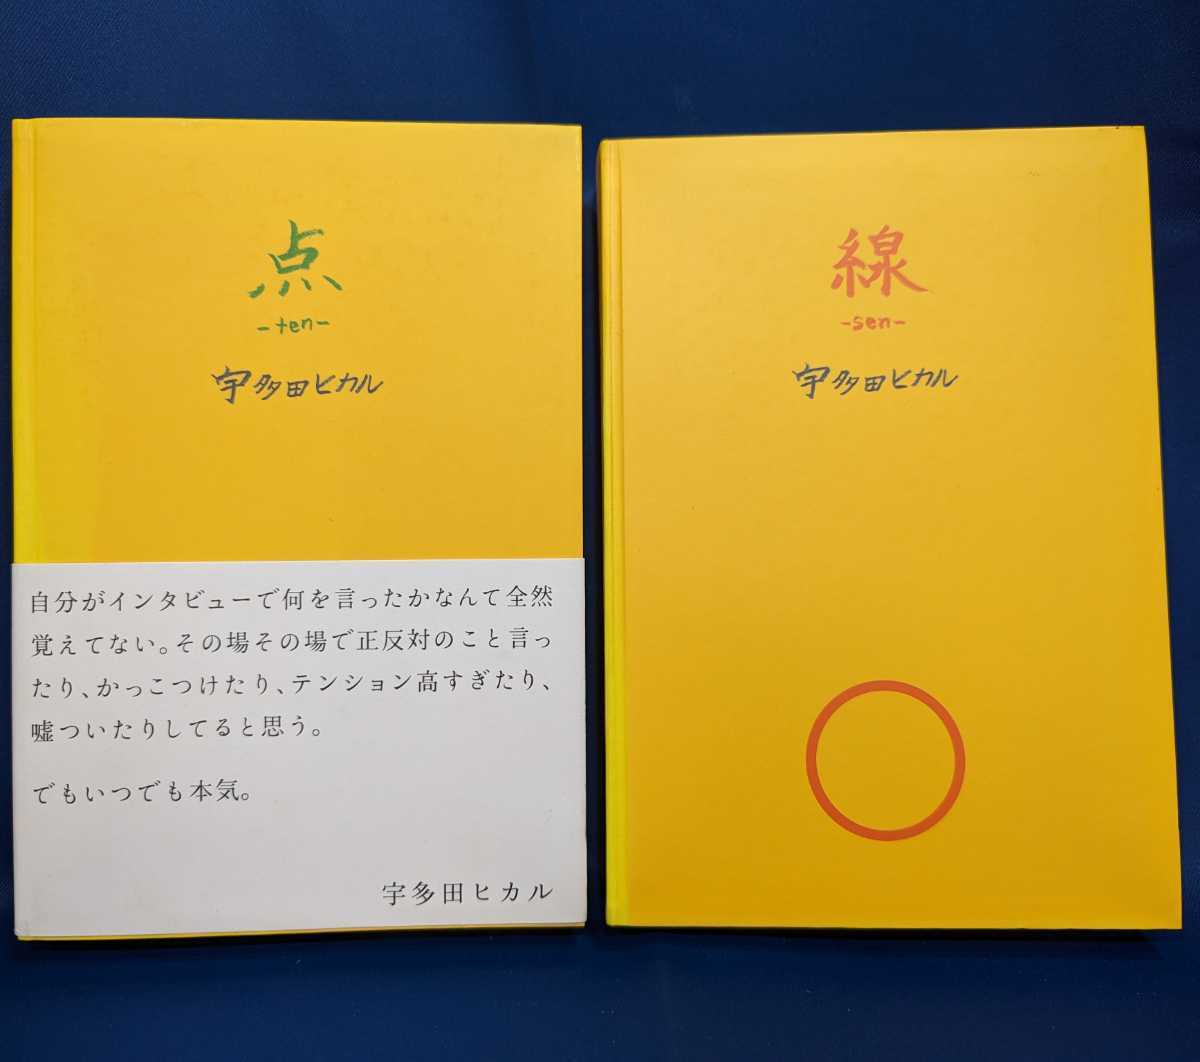 点
-ten-
宇多田ヒカル
自分がインタビューで何を言ったかなんて全然
覚えてない。その場その場で正反対のこと言っ
たり、かっこつけたり、テンション高すぎたり、
嘘ついたりしてると思う。
でもいつでも本気。
宇多田ヒカル
線
-sen-
宇多田ヒカル